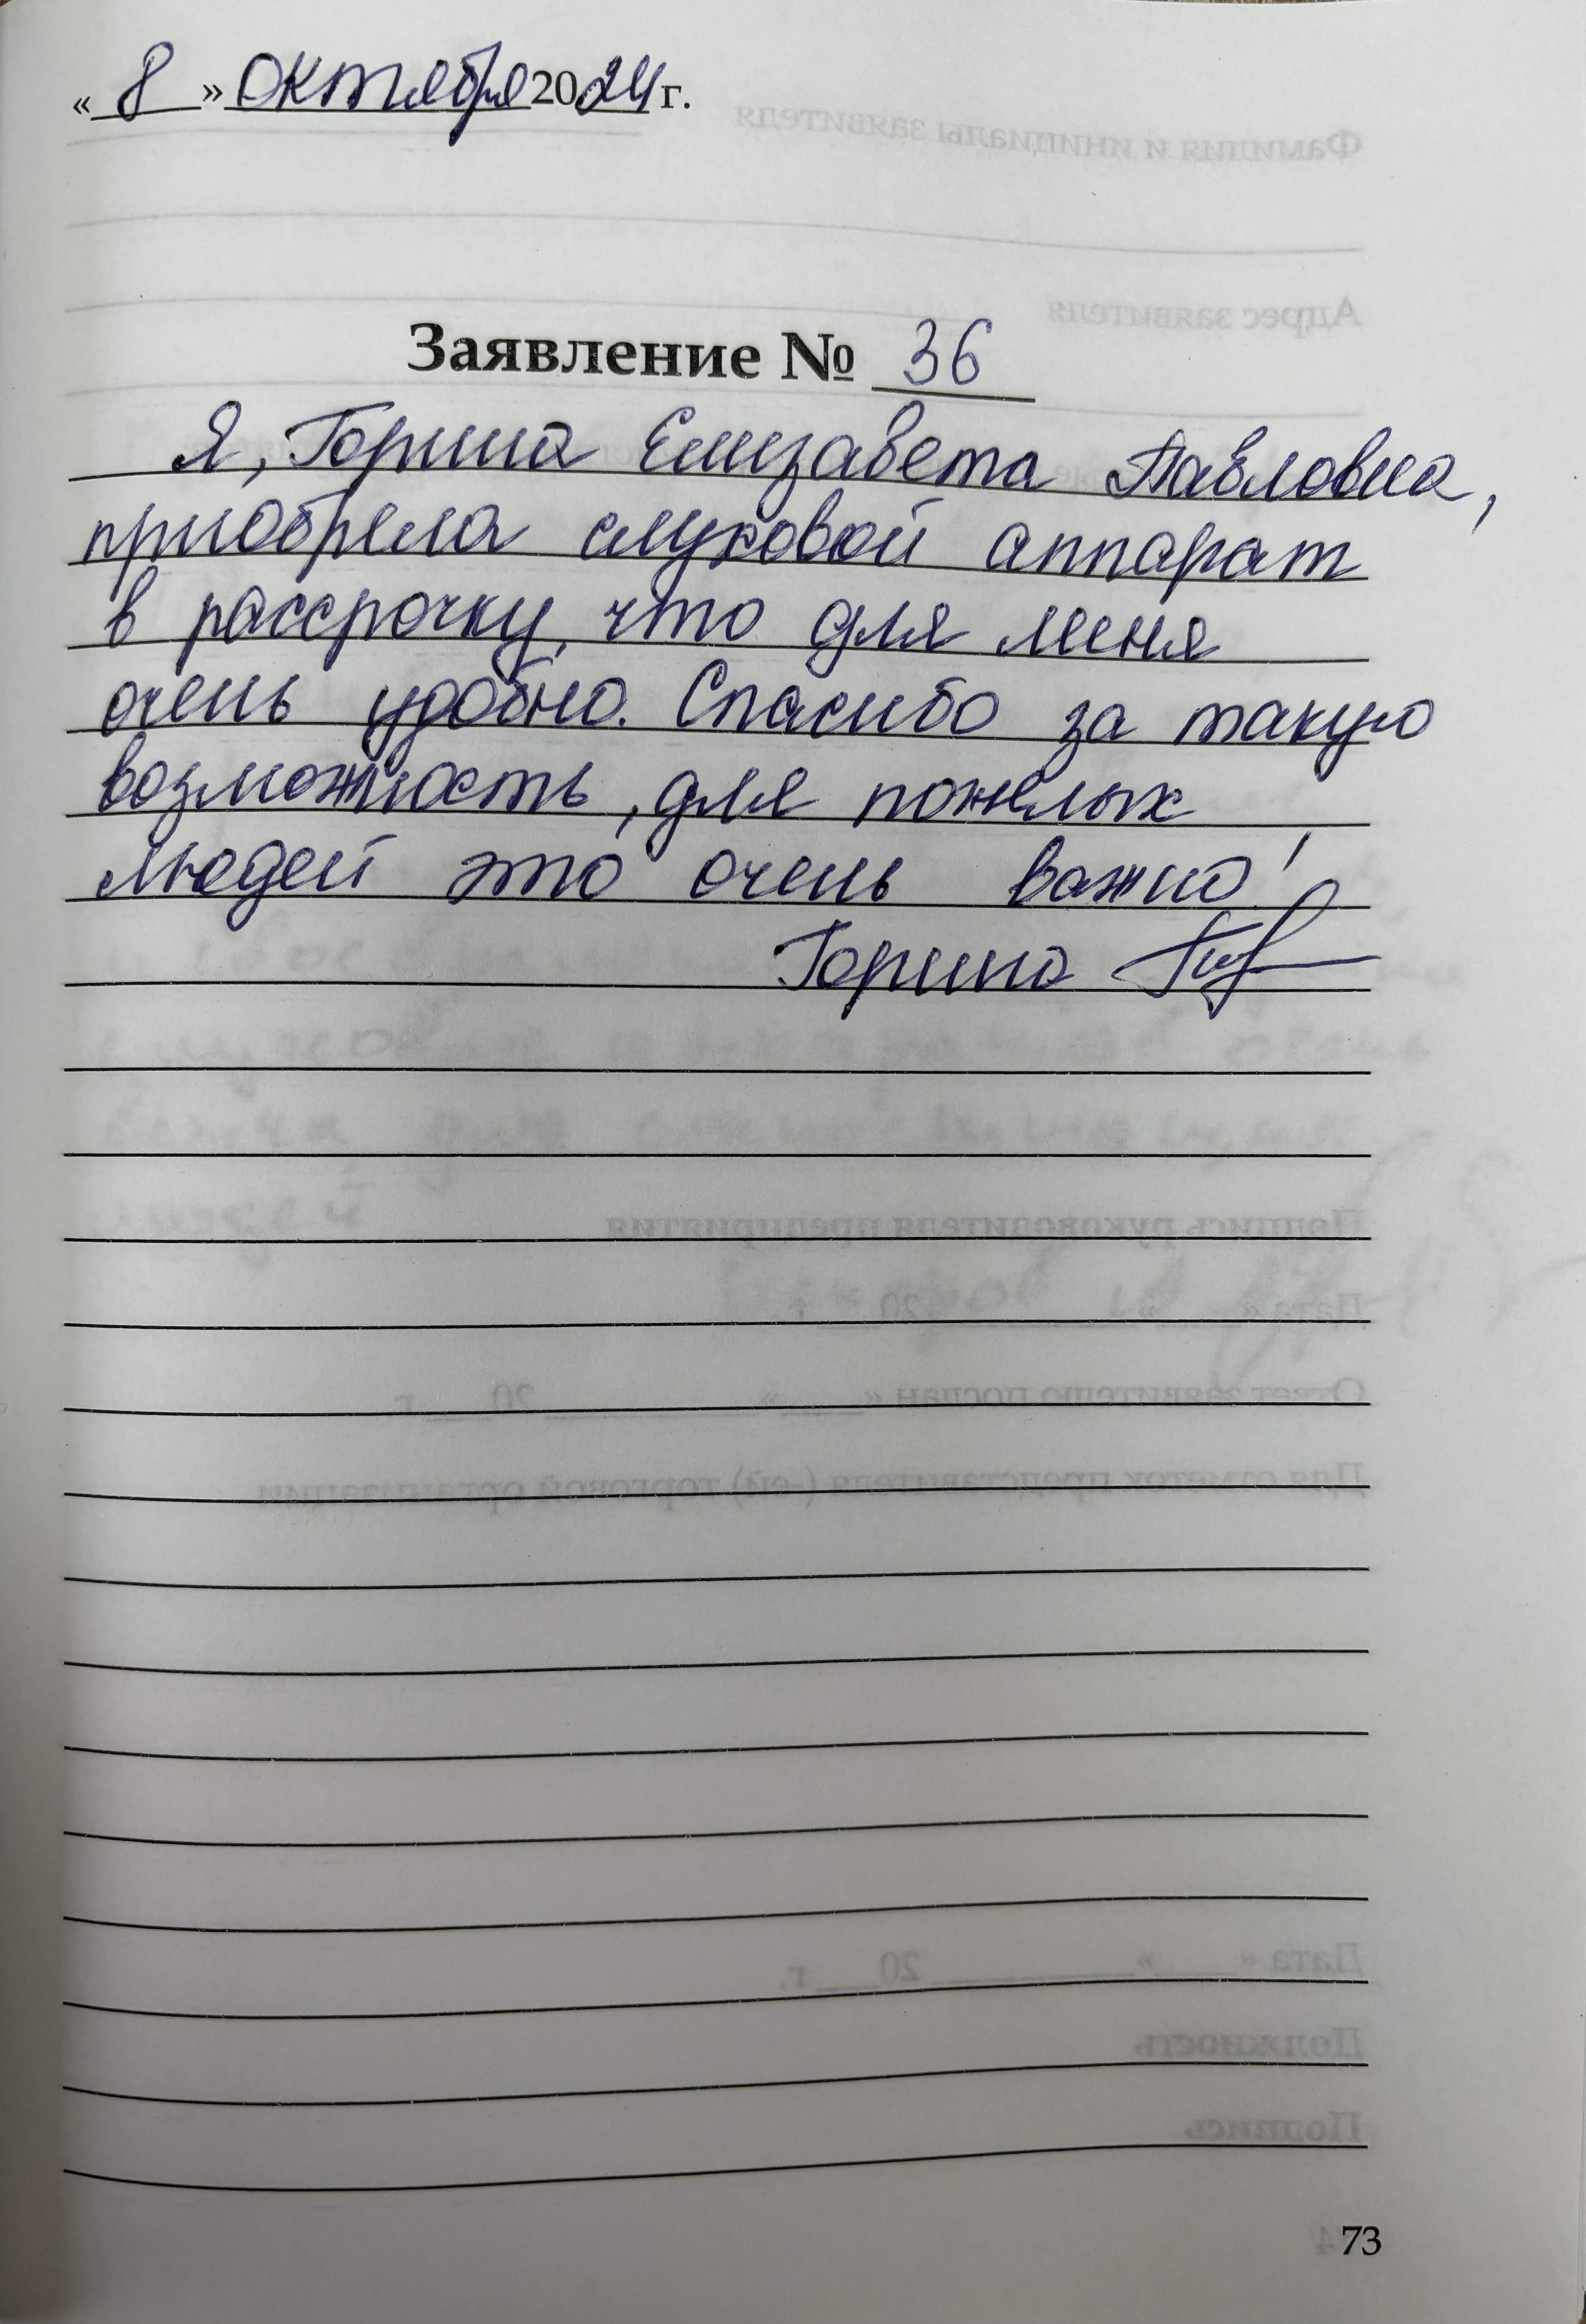 « 8 » октября 2024 г.
Заявление № 36
Я, Горина Елизавета Павловна,
приобрела слуховой аппарат
в рассрочку, что для меня
очень удобно. Спасибо за такую
возможность, для пожелых
людей это очень важно!
Горина
73